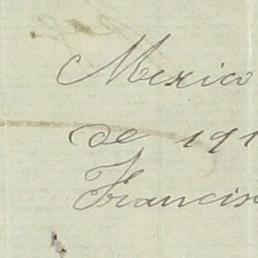 Mexico
de 191
Francis